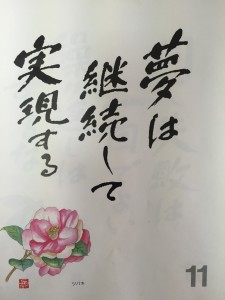 夢は
継続して
実現する
ツバキ
11